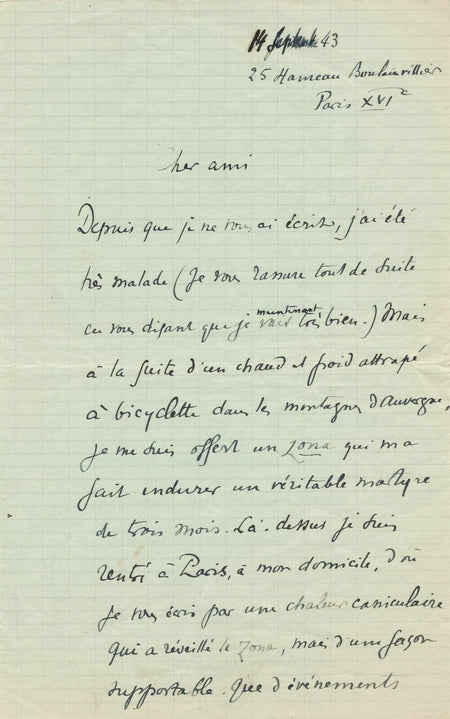 14 Septembre 43
25 Hameau Boulainvillier
Paris XVIe
Cher ami
Depuis que je ne vous ai écrit, j'ai été
très malade (Je vous rassure tout de suite
en vous disant que je vais maintenant très bien.) Mais
à la suite d'un chaud et froid attrapé
à bicyclette dans les montagnes d'Auvergne,
je me suis offert un zona qui m'a
fait endurer un véritable martyre
de trois mois. Là-dessus je suis
rentré à Paris, à mon domicile, d'où
je vous écris par une chaleur caniculaire
qui a réveillé le zona, mais d'une façon
supportable. Que d'événements